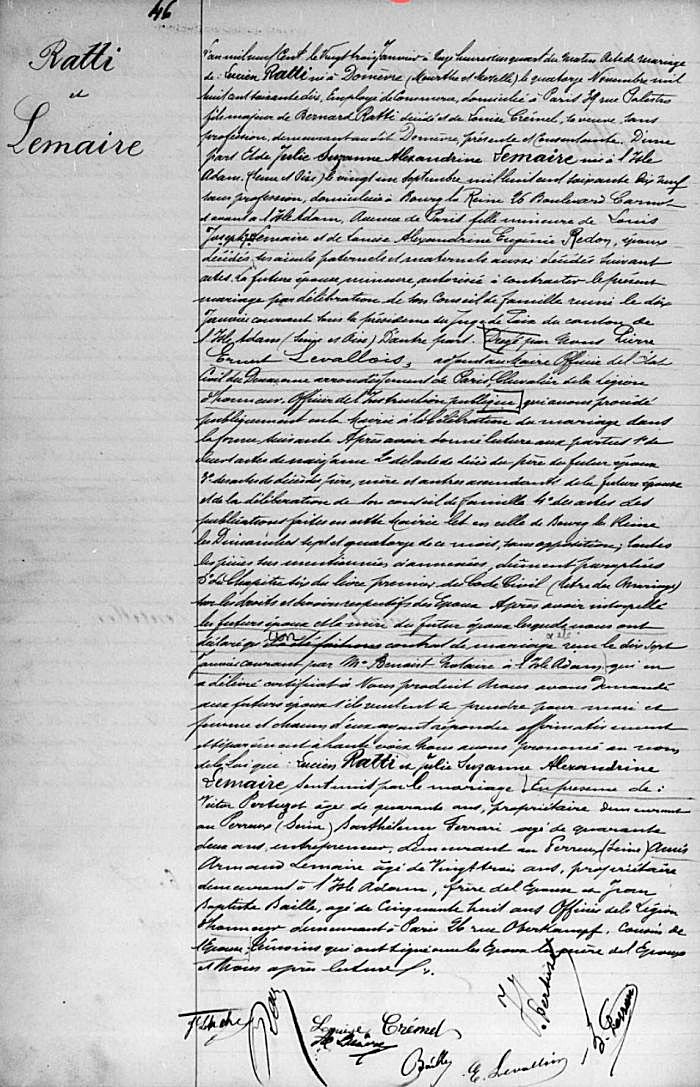 46
Ratti
et
Lemaire
L'an mil neuf Cent le Vingt trois Janvier à onze heures un quart du matin Acte de mariage
de : Lucien Ratti né à Domèvre (Meurthe et Moselle) le quatorze Novembre mil
huit cent soixante dix, Employé de Commerce, domicilié à Paris 39 rue Palestro
fils majeur de Bernard Ratti décédé et de Louise Crémel, sa veuve, sans
profession, demeurant au dit Domèvre, présente et Consentante. D'une
part Et de Julie Suzanne Alexandrine Lemaire née à l'Isle
Adam, (Seine et Oise) le vingt un Septembre mil huit cent soixante Dix neuf
sans profession, domiciliée à Bourg la Reine 26 Boulevard Carnot
et avant à l'Isle Adam, Avenue de Paris fille mineure de Louis
Joseph Lemaire et de Louise Alexandrine Eugénie Redon, époux
décédés, ses aieuls paternels et maternels aussi décédés suivant
actes. La future épouse mineure, autorisée à contracter le présent
mariage par délibération de son Conseil de famille réuni le dix
Janvier courant sous la présidence du Juge de Paix du canton de
l'Isle Adam (Seine et Oise) D'autre part. Dressé par Nous Pierre
Ernest Levallois, adjoint au Maire Officier de l'Etat
Civil du Douzième arrondissement de Paris, Chevalier de la Légion
d'honneur, Officier de l'Instruction publique, qui avons procédé
publiquement en la Mairie à la célébration du mariage dans
la forme suivante Après avoir donné lecture aux parties 1° de
leurs actes de naissance 2° de l'acte de décès du père du futur époux
3° des actes de décès des père, mère et autres ascendants de la future épouse
et de la délibération de son conseil de famille 4° des actes des
publications faites en cette Mairie et en celle de Bourg la Reine
les Dimanches sept et quatorze de ce mois, sans opposition, toutes
les pièces sus mentionnées et annexées, dûment paraphées
5° du Chapitre six du livre premier du Code Civil (titre du Mariage)
sur les droits et devoirs respectifs des Epoux Après avoir interpellé
les futurs époux et la mère du futur époux lesquels nous ont
déclaré qu' contrat de mariage reçu le dix sept
janvier courant par Me Benoist Notaire à l'Isle Adam, qui en
a délivré certificat à Nous produit Nous avons demandé
aux futurs époux s'ils veulent se prendre pour mari et
femme et chacun d'eux ayant répondu affirmativement
et séparément à haute voix Nous avons prononcé au nom
de la Loi que : Lucien Ratti et Julie Suzanne Alexandrine
Lemaire, sont unis par le mariage En présence de :
Victor Pertuzot âgé de quarante ans, propriétaire demeurant
au Perreux (Seine) Barthélemy Ferrari âgé de quarante
deux ans, entrepreneur, demeurant au Perreux (Seine)
Armand Lemaire âgé de Vingt trois ans, propriétaire
demeurant à l'Isle Adam, frère de l'Epouse et Jean
Baptiste Baille, âgé de Cinquante huit ans Officier de la Légion
d'honneur demeurant à Paris 26 rue Oberkampf. Cousin de
l'Epoux. Témoins qui ont signé avec les Epoux la mère de l'Epoux
et Nous après lecture
Louise Crémel
Baille
E. Levallois